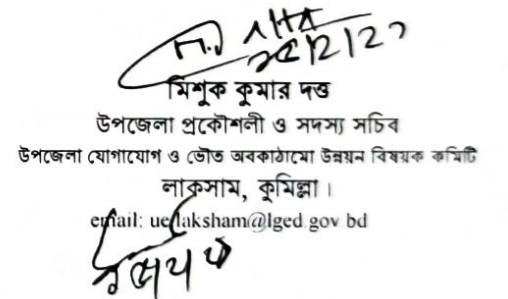 মিশুক কুমার দত্ত
উপজেলা প্রকৌশলী ও সদস্য সচিব
উপজেলা যোগাযোগ ও ভৌত অবকাঠামো উন্নয়ন বিষয়ক কমিটি
লাকসাম, কুমিল্লা।
email: ue.laksham@lged.gov bd